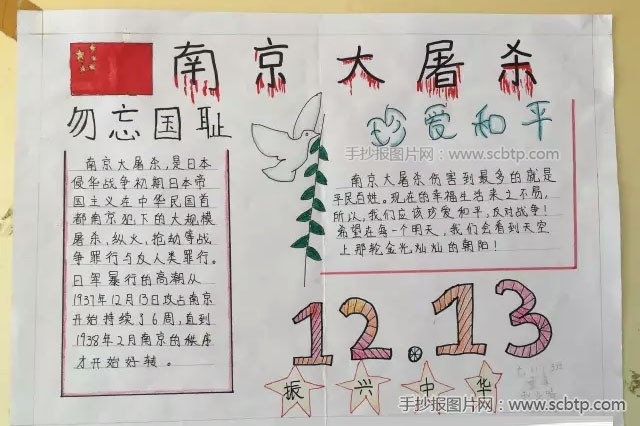 南京大屠杀
勿忘国耻
珍爱和平
手抄报图片网：www.scbtp.com
南京大屠杀,是日本
侵华战争初期日本帝
国主义在中华民国首
都南京犯下的大规模
屠杀,纵火,抢劫等战
争罪行与反人类罪行。
日军暴行的高潮从
1937年12月13日攻占南京
开始持续了6周,直到
1938年2月南京的秩序
才开始好转。
南京大屠杀伤害到最多的就是
平民百姓。现在的幸福生活来之不易,
所以,我们应该珍爱和平,反对战争!
希望在每一个明天,我们会看到天空
上那轮金光灿灿的朝阳!
12.13
振兴中华
手抄报图片网：www.scbtp.com